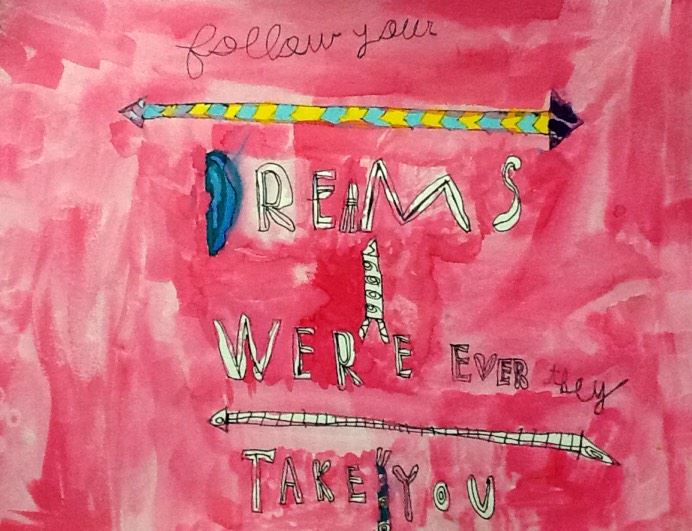 follow your
DREAMS
WERE EVER they
TAKE YOU